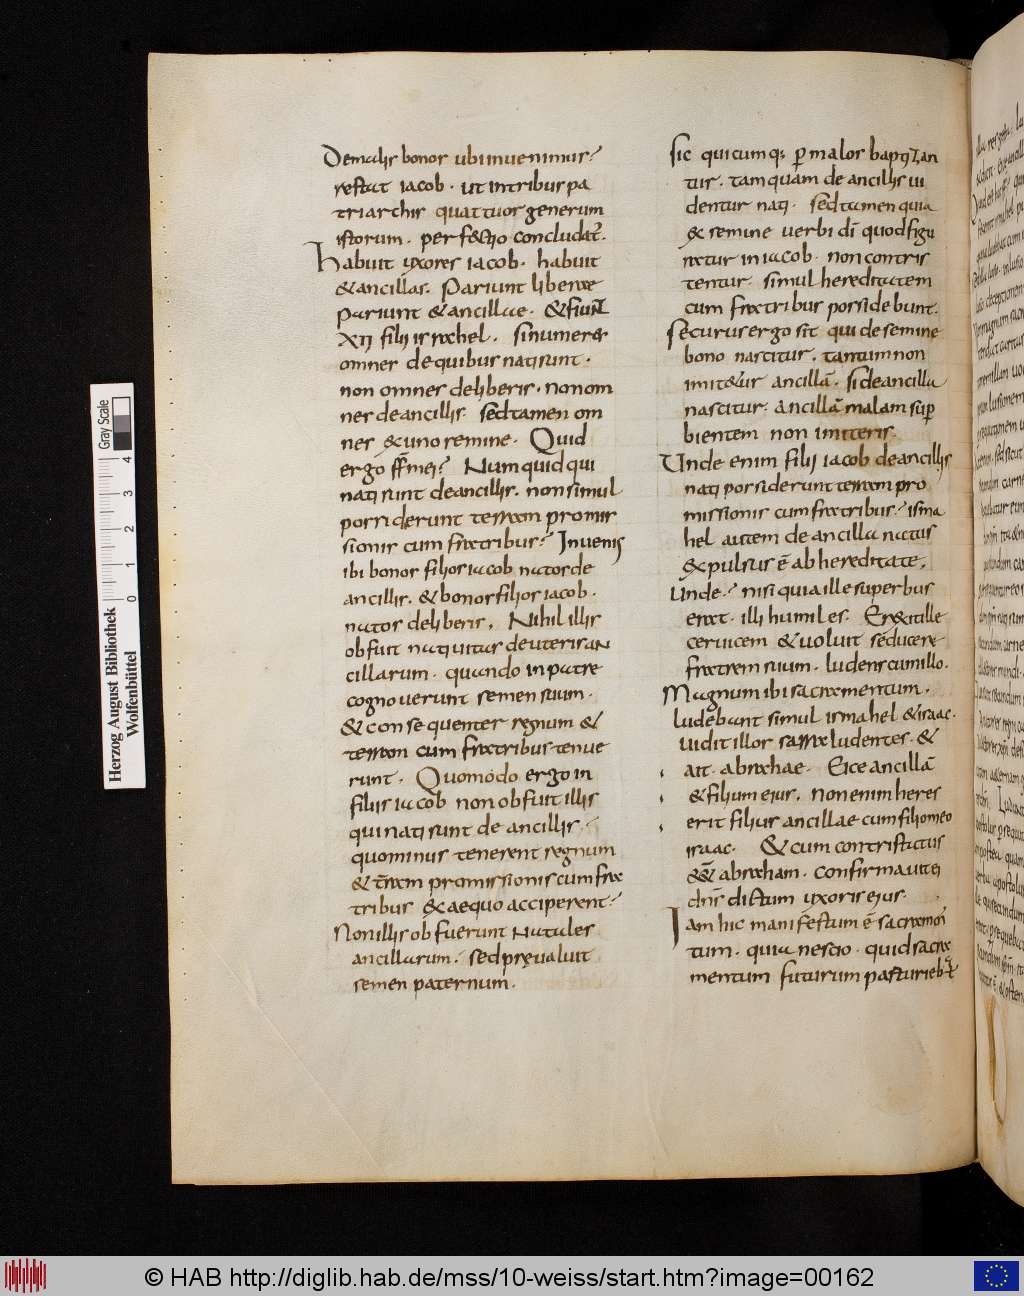 De malis bonos ubi invenimus?
restat iacob · ut in tribus pa
triarchis quattuor generum
istorum · perfectio concludat̄.
Habuit yxores iacob · habuit
& ancillas. Pariunt liberae
pariunt & ancillae · & fiunt
XII filii israhel. si numeres
omnes de quibus nati sunt ·
non omnes de liberis · non om
nes de ancillis · sed tamen om
nes ex uno semine · Quid
ergo ff̄ mei? Num quid qui
nati sunt de ancillis · non simul
possiderunt terram promis
sionis cum fratribus? Invenis
ibi bonos filios iacob natos de
ancillis · & bonos filios iacob ·
natos de liberis · Nihil illis
obfuit nativitas de uteris an
cillarum · quando in patre
cognoverunt semen suum ·
& consequenter regnum &
terram cum fratribus tenue
runt · Quomodo ergo in
filiis iacob non obfuit illis
qui nati sunt de ancillis ·
quominus tenerent regnum
& t̄ram promissionis cum fra
tribus & aequo acciperent?
Non illis obfuerunt natales
ancillarum · sed prȩvaluit
semen paternum ·
sic quicumq; ꝑ malos baptizan
tur · tamquam de ancillis vi
dentur nati · sed tamen quia
ex semine verbi dī quod figu
ratur in iacob · non contris
tentur · simul hereditatem
cum fratribus possidebunt ·
Securus ergo sit qui de semine
bono nascitur · tantum non
imitetur ancillā · si de ancilla
nascitur · Ancillā malam suꝑ
bientem non imiteris ·
Unde enim filii iacob de ancillis
nati possiderunt terram pro
missionis cum fratribus? isma
hel autem de ancilla natus
expulsus ē ab hereditate ·
Unde? nisi quia ille superbus
erat · illi humiles · Erexit ille
cervicem & voluit seducere
fratrem suum · ludens cum illo ·
Magnum ibi sacramentum ·
ludebant simul ismahel & isaac ·
vidit illos sarra ludentes · &
ait · abrahae · Eice ancillā
& filium eius · non enim heres
erit filius ancillae cum filio meo
isaac · Et cum contristatus
eēt abraham · confirmavit ei
dn̄s dictum yxoris eius ·
Iam hic manifestum ē sacramen
tum · quia nescio · quid sacra
mentum futurum parturieb
Herzog August Bibliothek
Wolfenbüttel
Gray Scale
0 1 2 3 4
© HAB http://diglib.hab.de/mss/10-weiss/start.htm?image=00162